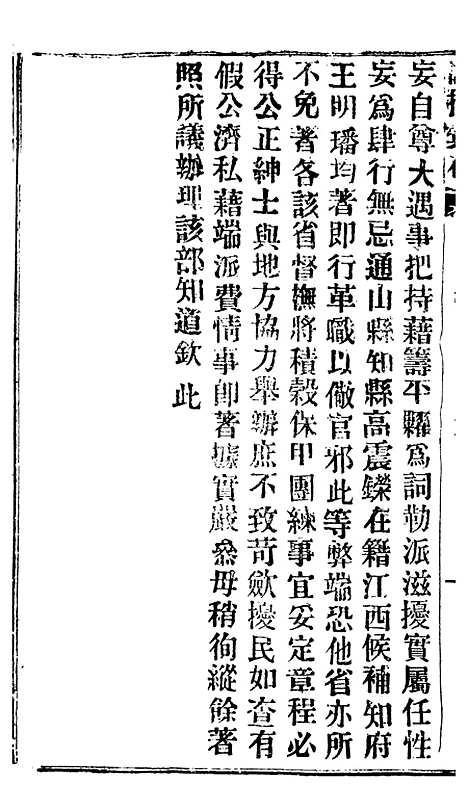 妄自尊大遇事把持藉籌平糶爲詞勒派滋擾實屬任性
妄爲肆行無忌通山縣知縣高震鑅在籍江西候補知府
王明璠均著卽行革職以儆官邪此等弊端恐他省亦所
不免著各該省督撫將積穀保甲團練事宜妥定章程必
得公正紳士與地方協力舉辦庶不致苛歛擾民如查有
假公濟私藉端派費情事卽著據實嚴叅毋稍徇縱餘著
照所議辦理該部知道欽此